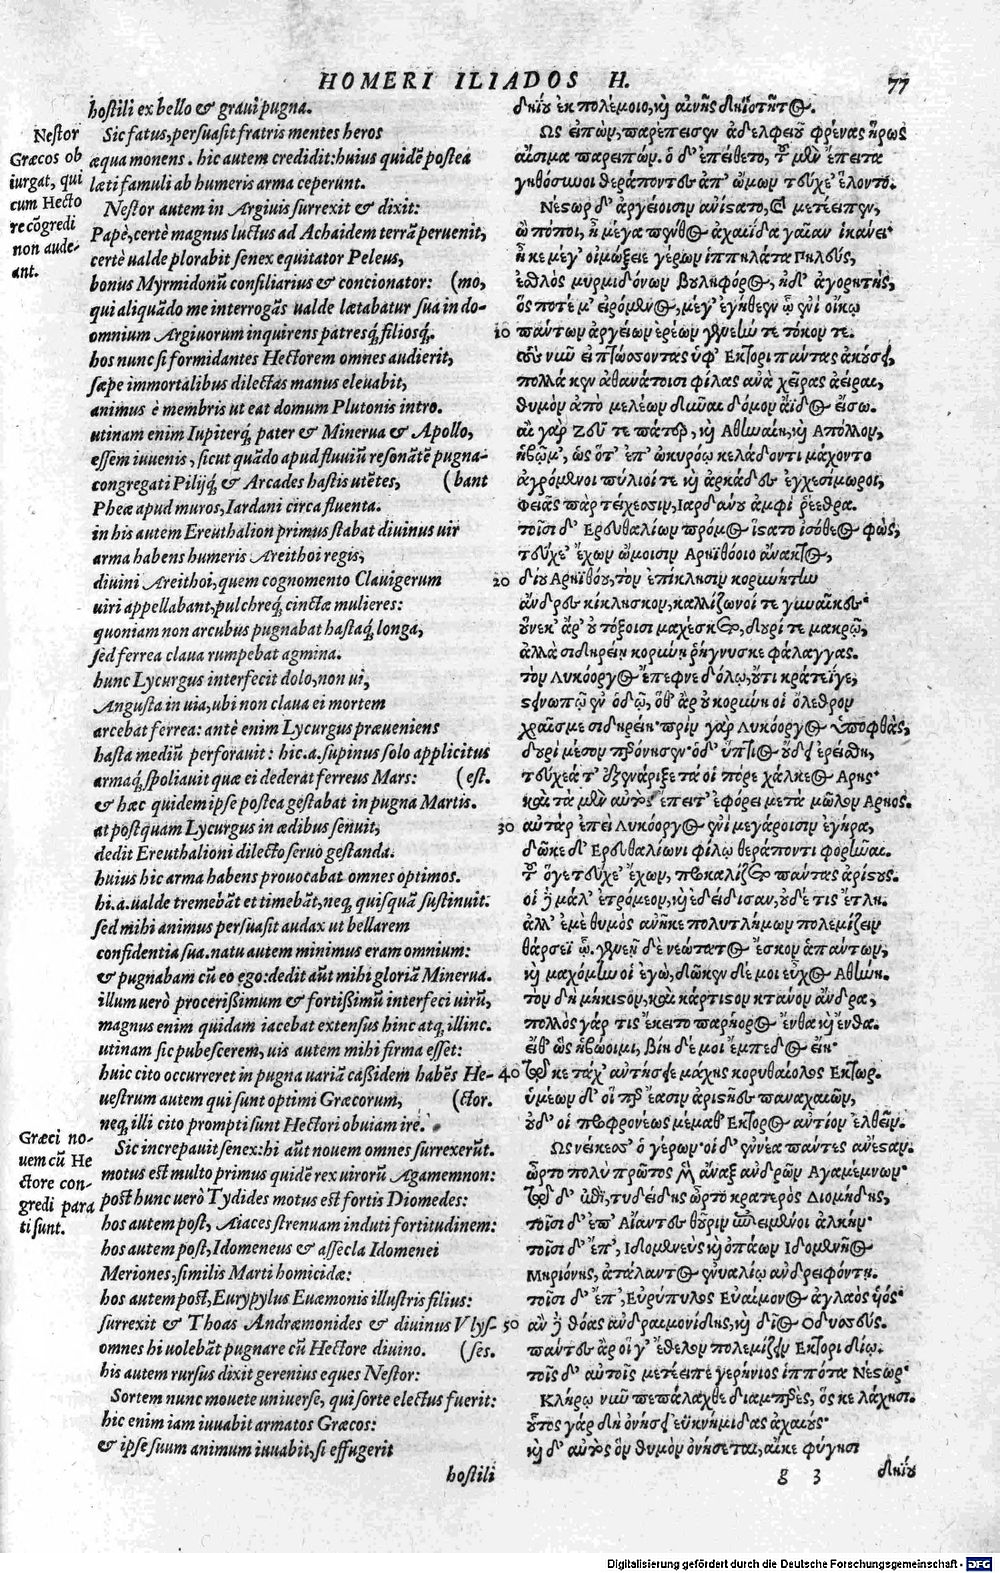 HOMERI ILIADOS H. 77
hostili ex bello & graui pugna.
Sic fatus, persuasit fratris mentes heros
æqua monens. hic autem credidit: huius quidē postea
læti famuli ab humeris arma ceperunt.
Nestor autem in Argiuis surrexit & dixit:
Papè, certè magnus luctus ad Achaidem terrā peruenit,
certè ualde plorabit senex equitator Peleus,
bonus Myrmidonū consiliarius & concionator: (mo,
qui aliquādo me interrogās ualde lætabatur sua in do-
omnium Argiuorum inquirens patresq́, filiosq́,
hos nunc si formidantes Hectorem omnes audierit,
sæpe immortalibus dilectas manus eleuabit,
animus è membris ut eat domum Plutonis intro.
utinam enim Iupiterq́, pater & Minerua & Apollo,
essem iuuenis, sicut quādo apud fluuiū resonātē pugna-
congregati Pilijq́, & Arcades hastis utētes, (bant
Pheæ apud muros, Iardani circa fluenta.
in his autem Ereuthalion primus stabat diuinus uir
arma habens humeris Areithoi regis,
diuini Areithoi, quem cognomento Clauigerum
uiri appellabant, pulchreq́, cinctæ mulieres:
quoniam non arcubus pugnabat hastaq́, longa,
sed ferrea claua rumpebat agmina.
hunc Lycurgus interfecit dolo, non ui,
Angusta in uia, ubi non claua ei mortem
arcebat ferrea: antè enim Lycurgus præueniens
hasta mediū perforauit: hic.a. supinus solo applicitus
armaq́, spoliauit quæ ei dederat ferreus Mars: (est.
& hæc quidem ipse postea gestabat in pugna Martis.
at postquam Lycurgus in ædibus senuit,
dedit Ereuthalioni dilecto seruo gestanda.
huius hic arma habens prouocabat omnes optimos.
hi.a. ualde tremebāt et timebāt, neq, quisquā sustinuit:
sed mihi animus persuasit audax ut bellarem
confidentia sua. natu autem minimus eram omnium:
& pugnabam cū eo ego: dedit aūt mihi gloriā Minerua.
illum uerò procerißimum & fortißimū interfeci uirū,
magnus enim quidam iacebat extensus hinc atq, illinc.
utinam sic pubescerem, uis autem mihi firma esset:
huic cito occurreret in pugna uariā caßidem habēs He-
uestrum autem qui sunt optimi Græcorum, (ctor.
neq, illi cito prompti sunt Hectori obuiam ire.
Sic increpauit senex: hi aūt nouem omnes surrexerūt.
motus est multo primus quidē rex uirorū Agamemnon:
post hunc uerò Tydides motus est fortis Diomedes:
hos autem post, Aiaces strenuam induti fortitudinem:
hos autem post, Idomeneus & assecla Idomenei
Meriones, similis Marti homicidæ:
hos autem post, Eurypylus Euæmonis illustris filius:
surrexit & Thoas Andræmonides & diuinus Vlys-
omnes hi uolebāt pugnare cū Hectore diuino. (ses.
his autem rursus dixit gerenius eques Nestor:
Sortem nunc mouete uniuerse, qui sorte electus fuerit:
hic enim iam iuuabit armatos Græcos:
& ipse suum animum iuuabit, si effugerit
hostili
Nestor
Græcos ob
iurgat, qui
cum Hecto
re cōgredi
non aude-
ant.
Græci no-
uem cū He
ctore con-
gredi para
ti sunt.
δηΐου ἐκ πολέμοιο, καὶ αἰνῆς δηϊοτῆτος.
Ως εἰπὼν, παρέπεισεν ἀδελφειοῦ φρένας ἥρως
αἴσιμα παρειπών. ὁ δ' ἐπείθετο, τοῦ μὲν ἔπειτα
γηθόσυνοι θεράποντες ἀπ' ὤμων τεύχε' ἕλοντο.
Νέστωρ δ' ἀργείοισιν ἀνίστατο, καὶ μετέειπεν,
ὢ πόποι, ἦ μέγα πένθος ἀχαιΐδα γαῖαν ἱκάνει·
ἦ κε μέγ' οἰμώξειε γέρων ἱππηλάτα Πηλεὺς,
ἐσθλὸς μυρμιδόνων βουληφόρος, ἠδ' ἀγορητής,
ὅς ποτέ μ' εἰρόμενος, μέγ' ἐγήθεεν ᾧ ἐνὶ οἴκῳ
10 πάντων ἀργείων ἐρέων γενεήν τε τόκον τε.
τοὺς νῦν εἰ πτώσσοντας ὑφ' Εκτορι πάντας ἀκούσῃ,
πολλά κεν ἀθανάτοισι φίλας ἀνὰ χεῖρας ἀείραι,
θυμὸν ἀπὸ μελέων δῦναι δόμον ἄϊδος εἴσω.
αἲ γὰρ Ζεῦ τε πάτερ, καὶ Αθηναίη, καὶ Απόλλον,
ἡβῷμ', ὡς ὅτ' ἐπ' ὠκυρόῳ κελάδοντι μάχοντο
ἀγρόμενοι πύλιοί τε καὶ ἀρκάδες ἐγχεσίμωροι,
Φειᾶς πὰρ τείχεσσιν, Ιαρδάνου ἀμφὶ ῥέεθρα.
τοῖσι δ' Ερευθαλίων πρόμος ἵστατο ἰσόθεος φὼς,
τεύχε' ἔχων ὤμοισιν Αρηϊθόοιο ἄνακτος,
20 δίου Αρηϊθόου, τὸν ἐπίκλησιν κορυνήτην
ἄνδρες κίκλησκον, καλλίζωνοί τε γυναῖκες·
οὕνεκ' ἄρ' οὐ τόξοισι μαχέσκετο, δουρί τε μακρῷ,
ἀλλὰ σιδηρείῃ κορύνῃ ῥήγνυσκε φάλαγγας.
τὸν Λυκόοργος ἔπεφνε δόλῳ, οὔτι κράτεΐγε,
στεινωπῷ ἐν ὁδῷ, ὅθ' ἂρ οὐ κορύνη οἱ ὄλεθρον
χραῖσμε σιδηρείη· πρὶν γὰρ Λυκόοργος ὑποφθὰς,
δουρὶ μέσον περόνησεν· ὁ δ' ὕπτιος οὔδει ἐρείσθη,
τεύχεά τ' ἐξενάριξε τά οἱ πόρε χάλκεος Αρης·
καὶ τὰ μὲν αὐτὸς ἔπειτ' ἐφόρει μετὰ μῶλον Αρηος.
30 αὐτὰρ ἐπεὶ Λυκόοργος ἐνὶ μεγάροισιν ἐγήρα,
δῶκε δ' Ερευθαλίωνι φίλῳ θεράποντι φορῆναι.
τοῦ ὅγε τεύχε' ἔχων, προκαλίζετο πάντας ἀρίστους.
οἱ δὲ μάλ' ἐτρόμεον, καὶ ἐδείδισαν, οὐδέ τις ἔτλη.
ἀλλ' ἐμὲ θυμὸς ἀνῆκε πολυτλήμων πολεμίζειν
θάρσεϊ ᾧ. γενεῇ δὲ νεώτατος ἔσκον ἁπάντων,
καὶ μαχόμην οἱ ἐγὼ, δῶκεν δέ μοι εὖχος Αθήνη.
τὸν δὴ μήκιστον, καὶ κάρτιστον κτάνον ἄνδρα,
πολλὸς γάρ τις ἔκειτο παρήορος ἔνθα καὶ ἔνθα.
εἴθ' ὣς ἡβώοιμι, βίη δέ μοι ἔμπεδος εἴη·
40 τῷ κε τάχ' ἀντήσειε μάχης κορυθαίολος Εκτωρ.
ὑμέων δ' οἵ περ ἔασιν ἀριστῆες παναχαιῶν,
οὐδ' οἱ προφρονέως μέμαθ' Εκτορος ἀντίον ἐλθεῖν.
Ως νείκεσσ' ὁ γέρων· οἱ δ' ἐννέα πάντες ἀνέσταν.
ὦρτο πολὺ πρῶτος μὲν ἄναξ ἀνδρῶν Αγαμέμνων·
τῷ δ' ἐπὶ, τυδείδης ὦρτο κρατερὸς Διομήδης,
τοῖσι δ' ἐπ' Αἴαντες θοῦριν ἐπιειμένοι ἀλκήν·
τοῖσι δ' ἔπ', Ιδομενεὺς καὶ ὀπάων Ιδομενῆος
Μηριόνης, ἀτάλαντος ἐνυαλίῳ ἀνδρειφόντῃ.
τοῖσι δ' ἔπ', Εὐρύπυλος Εὐαίμονος ἀγλαὸς υἱός·
50 ἂν δὲ θόας ἀνδραιμονίδης, καὶ δῖος Οδυσσεύς.
πάντες ἄρ οἵ γ' ἔθελον πολεμίζειν Εκτορι δίῳ.
τοῖς δ' αὖτις μετέειπε γερήνιος ἱππότα Νέστωρ·
Κλήρῳ νῦν πεπάλαχθε διαμπερὲς, ὅς κε λάχησι.
οὗτος γὰρ δὴ ὀνήσει ἐϋκνήμιδας ἀχαιούς·
καὶ δ' αὐτὸς ὃν θυμὸν ὀνήσεται, αἴκε φύγησι
g 3 δηΐου
Digitalisierung gefördert durch die Deutsche Forschungsgemeinschaft - DFG